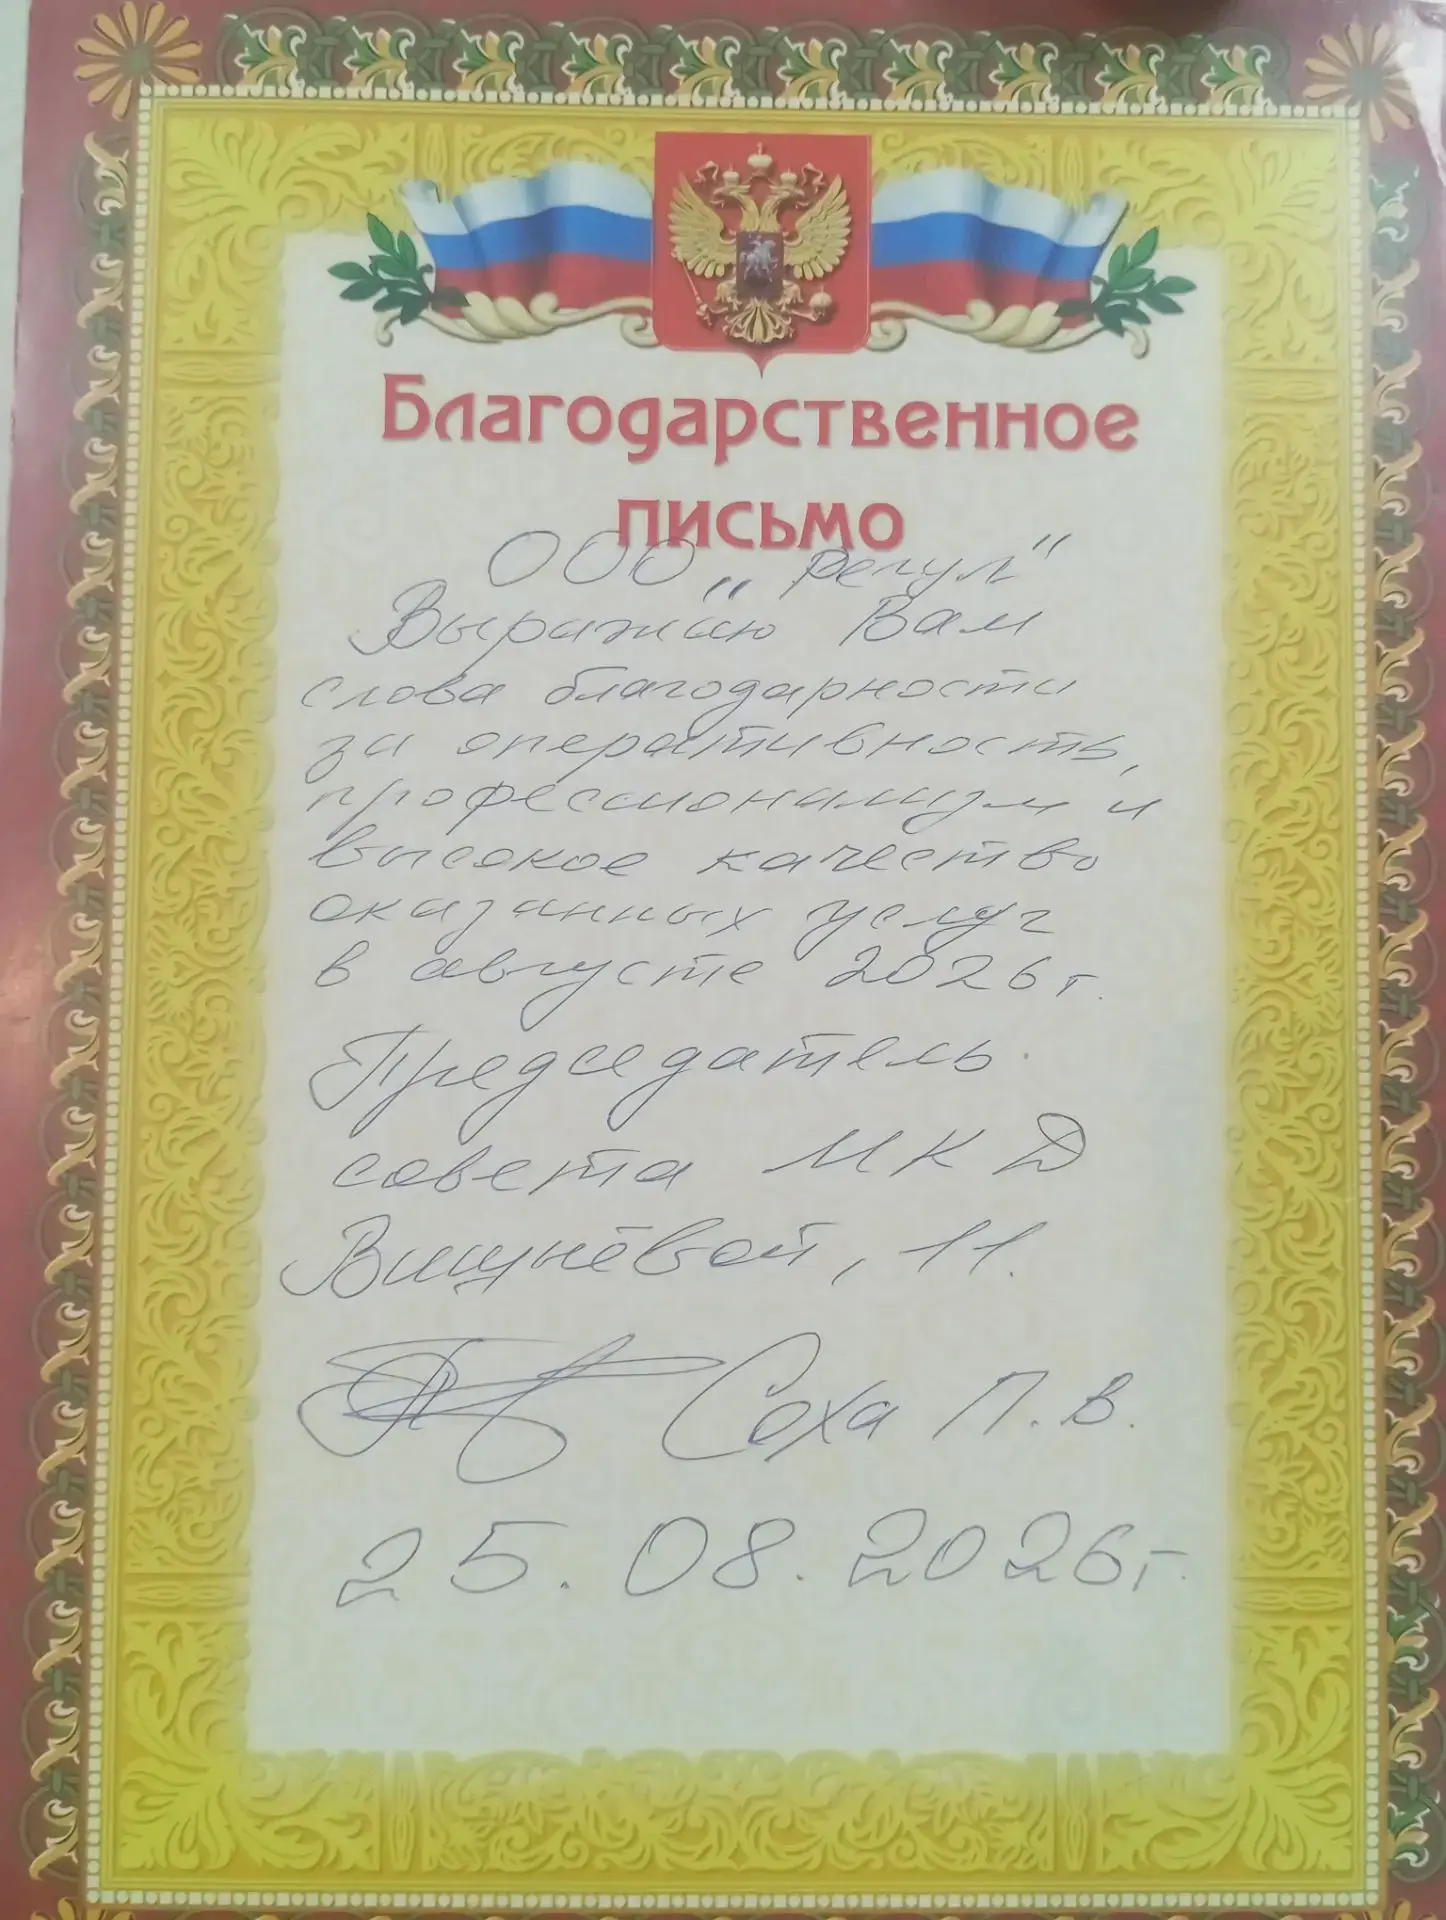 Благодарственное
письмо
ООО „Регул"
Выражаю Вам
слова благодарности
за оперативность,
профессионализм и
высокое качество
оказанных услуг
в августе 2026 г.
Председатель
совета МКД
Вишнёвой, 11.
Соха П.В.
25.08.2026г.